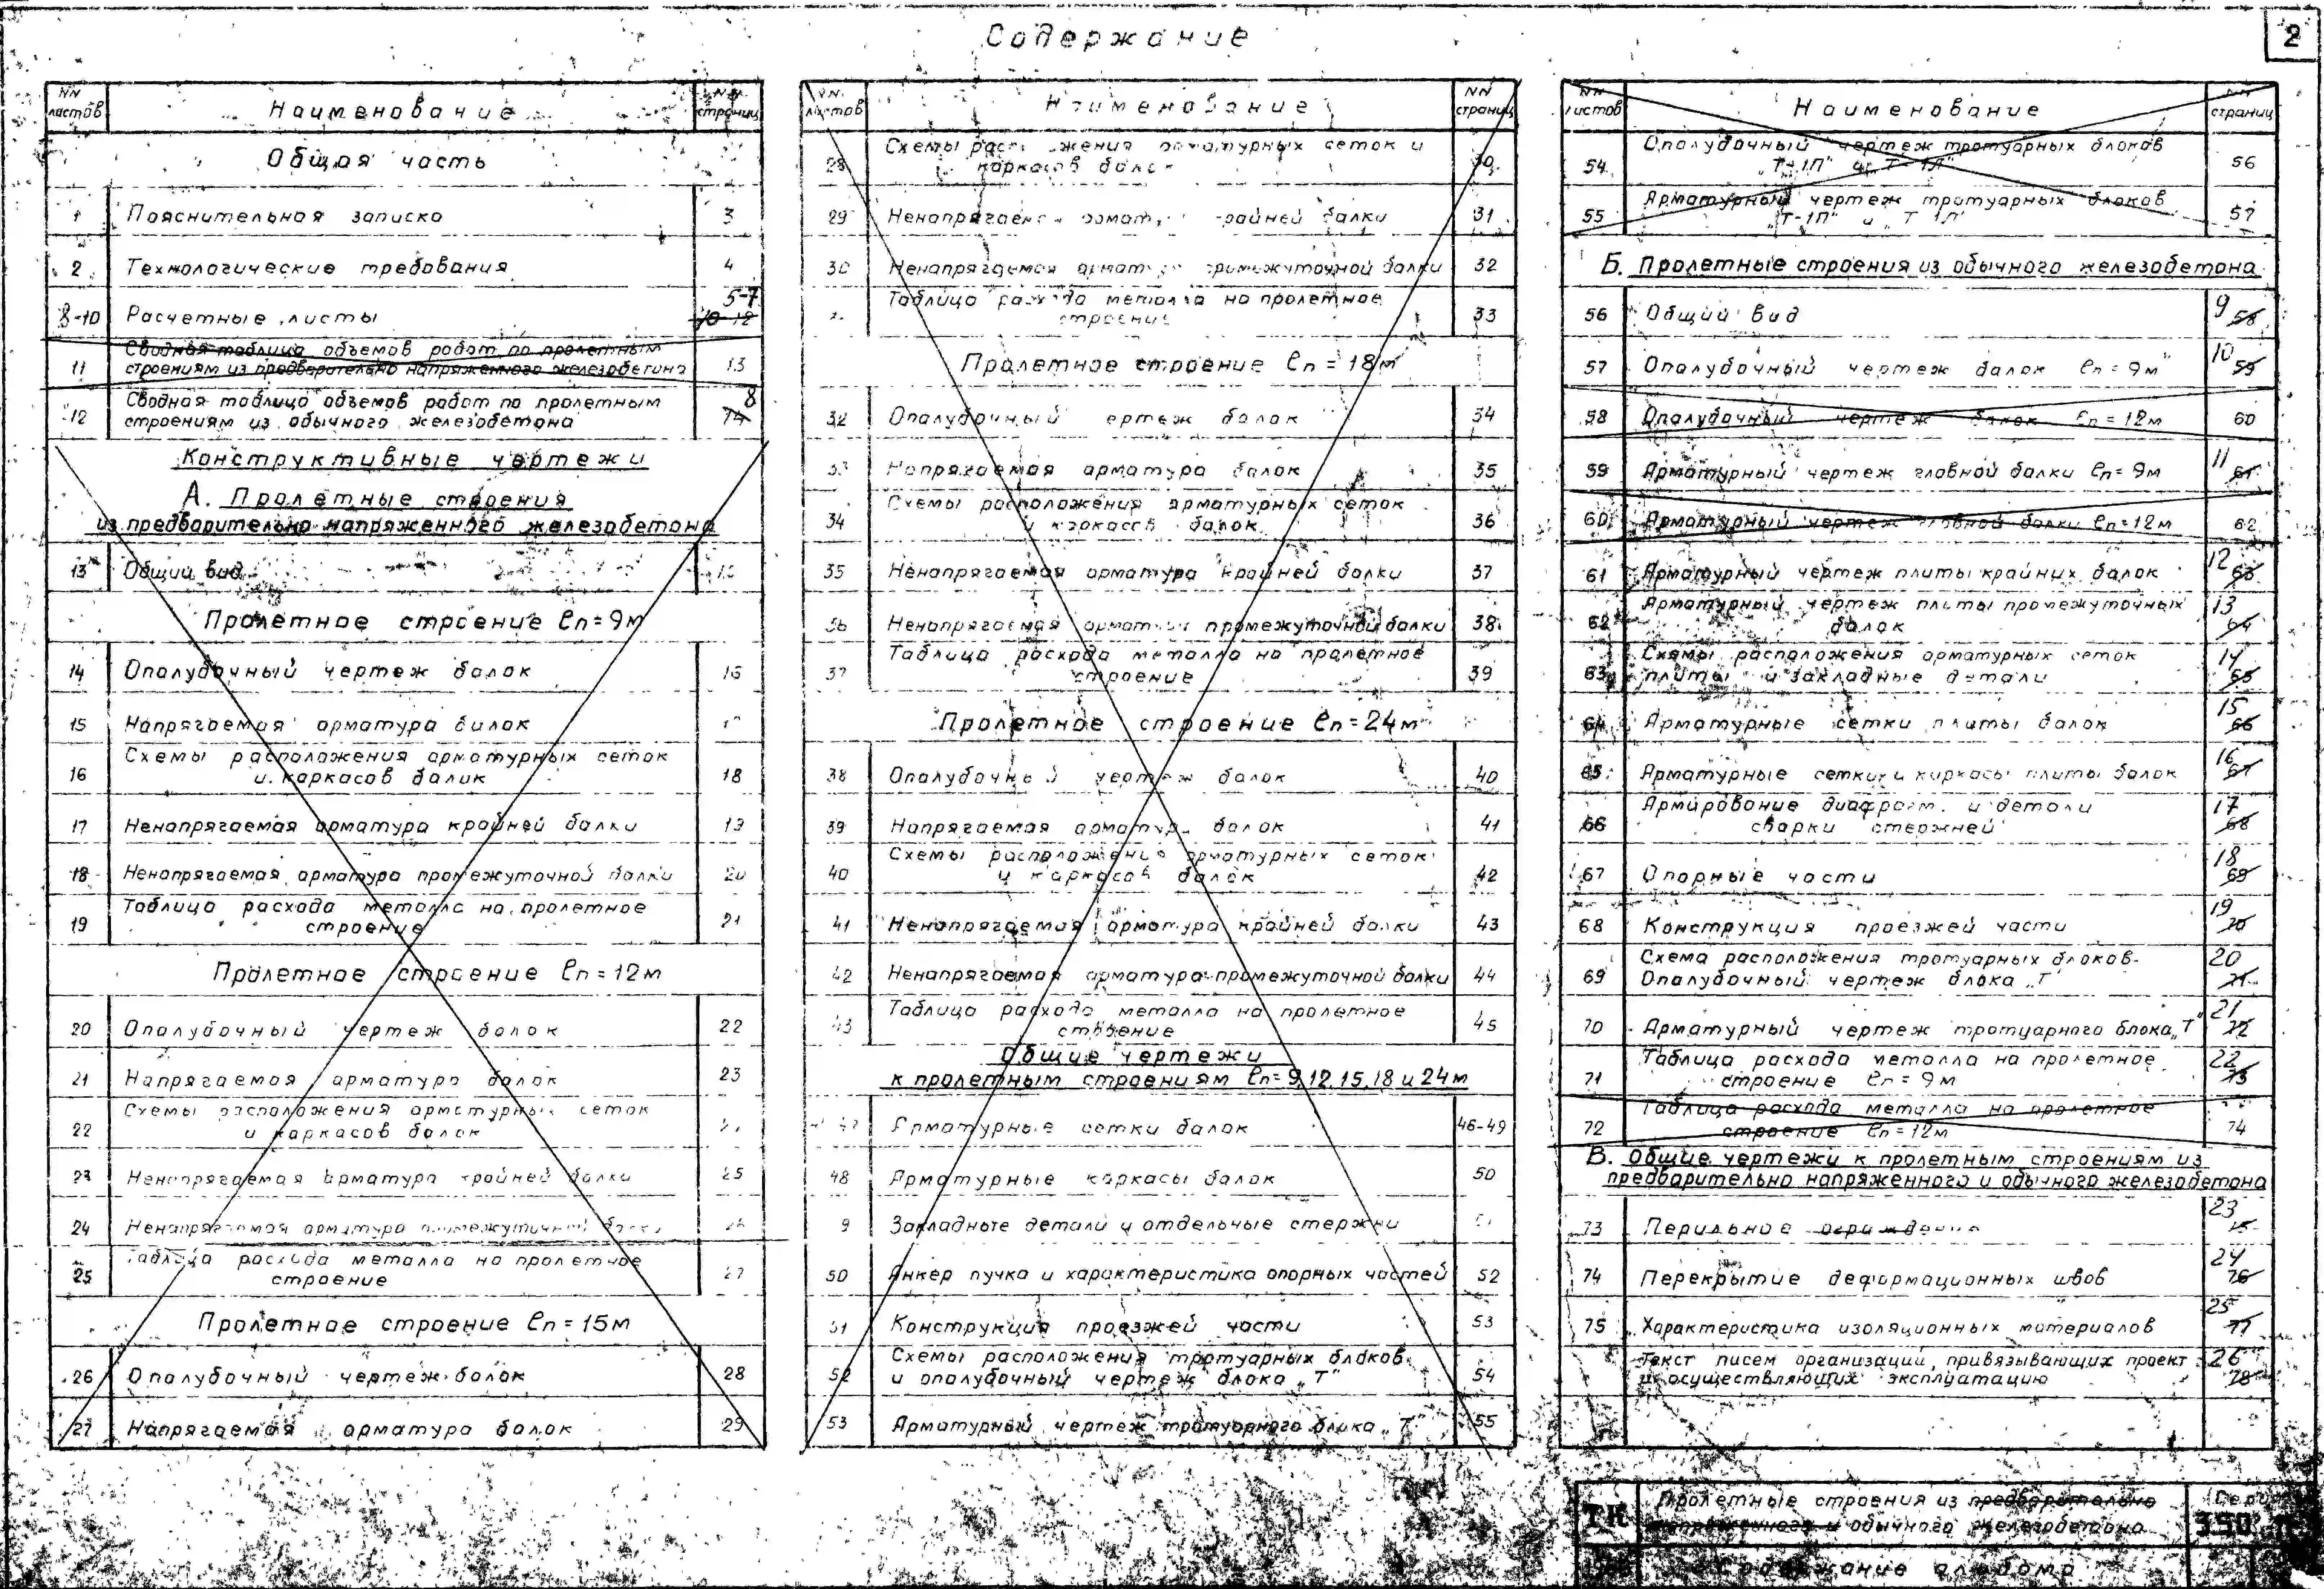 Содержание
2
NN листов Наименование NN страниц
Общая часть
1 Пояснительная записка 3
2 Технологические требования 4
5-7
8-10 Расчетные листы 10-12
Сводная таблица объемов работ по пролетным
11 строениям из предварительно напряженного железобетона 13
Сводная таблица объемов работ по пролетным 8
12 строениям из обычного железобетона 74
Конструктивные чертежи
А. Пролетные строения
из предварительно напряженного железобетона
13 Общий вид
Пролетное строение ℓп=9м
14 Опалубочный чертеж балок 16
15 Напрягаемая арматура балок
Схемы расположения арматурных сеток
16 и каркасов балок 18
17 Ненапрягаемая арматура крайней балки 19
18 Ненапрягаемая арматура промежуточной балки 20
Таблица расхода металла на пролетное
19 строение 21
Пролетное строение ℓп=12м
20 Опалубочный чертеж балок 22
21 Напрягаемая арматура балок 23
Схемы расположения арматурных сеток
22 и каркасов балок
23 Ненапрягаемая арматура крайней балки 25
24 Ненапрягаемая арматура промежуточной балки 26
Таблица расхода металла на пролетное
25 строение 27
Пролетное строение ℓп=15м
26 Опалубочный чертеж балок 28
27 Напрягаемая арматура балок 29
NN листов Наименование NN страниц
Схемы арматурных сеток и
28 каркасов балок 30
29 Ненапрягаемая крайней балки 31
30 Ненапрягаемая промежуточной балки 32
Таблица расхода металла на пролетное
строение 33
Пролетное строение ℓп=18м
32 Опалубочный чертеж балок 34
33 Напрягаемая арматура балок 35
Схемы расположения арматурных сеток
34 и каркасов балок 36
35 Ненапрягаемая арматура крайней балки 37
36 Ненапрягаемая арматура промежуточной балки 38
Таблица расхода металла на пролетное
37 строение 39
Пролетное строение ℓп=24м
38 Опалубочный чертеж балок 40
39 Напрягаемая арматура балок 41
Схемы расположения арматурных сеток
40 и каркасов балок 42
41 Ненапрягаемая арматура крайней балки 43
42 Ненапрягаемая арматура промежуточной балки 44
Таблица расхода металла на пролетное
43 строение 45
Общие чертежи
к пролетным строениям ℓп=9,12,15,18 и 24м
Арматурные сетки балок 46-49
48 Арматурные каркасы балок 50
9 Закладные детали и отдельные стержни
50 Анкер пучка и характеристика опорных частей 52
51 Конструкция проезжей части 53
Схемы расположения тротуарных блоков
52 и опалубочный чертеж блока „Т" 54
53 Арматурный чертеж тротуарного блока „Т" 55
NN листов Наименование NN страниц
Опалубочный чертеж тротуарных блоков
54 „Т-1П" и „Т-1Л" 56
Арматурный чертеж тротуарных блоков
55 „Т-1П" и „Т-1Л" 57
Б. Пролетные строения из обычного железобетона
56 Общий вид 9 58
57 Опалубочный чертеж балок ℓп=9м 10 59
58 Опалубочный чертеж балок ℓп=12м 60
59 Арматурный чертеж главной балки ℓп=9м 11 61
60 Арматурный чертеж главной балки ℓп=12м 62
61 Арматурный чертеж плиты крайних балок 12 63
Арматурный чертеж плиты промежуточных 13
62 балок 64
Схемы расположения арматурных сеток 14
63 плиты и закладные детали 65
64 Арматурные сетки плиты балок 15 66
65 Арматурные сетки и каркасы плиты балок 16 67
Армирование диафрагм и детали 17
66 сварки стержней 68
67 Опорные части 18 69
68 Конструкция проезжей части 19 70
Схема расположения тротуарных блоков. 20
69 Опалубочный чертеж блока „Т" 71
70 Арматурный чертеж тротуарного блока „Т" 21 72
Таблица расхода металла на пролетное 22
71 строение ℓп=9м 73
Таблица расхода металла на пролетное
72 строение ℓп=12м 74
В. Общие чертежи к пролетным строениям из
предварительно напряженного и обычного железобетона
73 Перильное ограждение 23 75
74 Перекрытие деформационных швов 24 76
75 Характеристика изоляционных материалов 25 77
Текст писем организаций, привязывающих проект 26
и осуществляющих эксплуатацию 78
ТК Пролетные строения из предварительно
напряженного и обычного железобетона
Содержание альбома